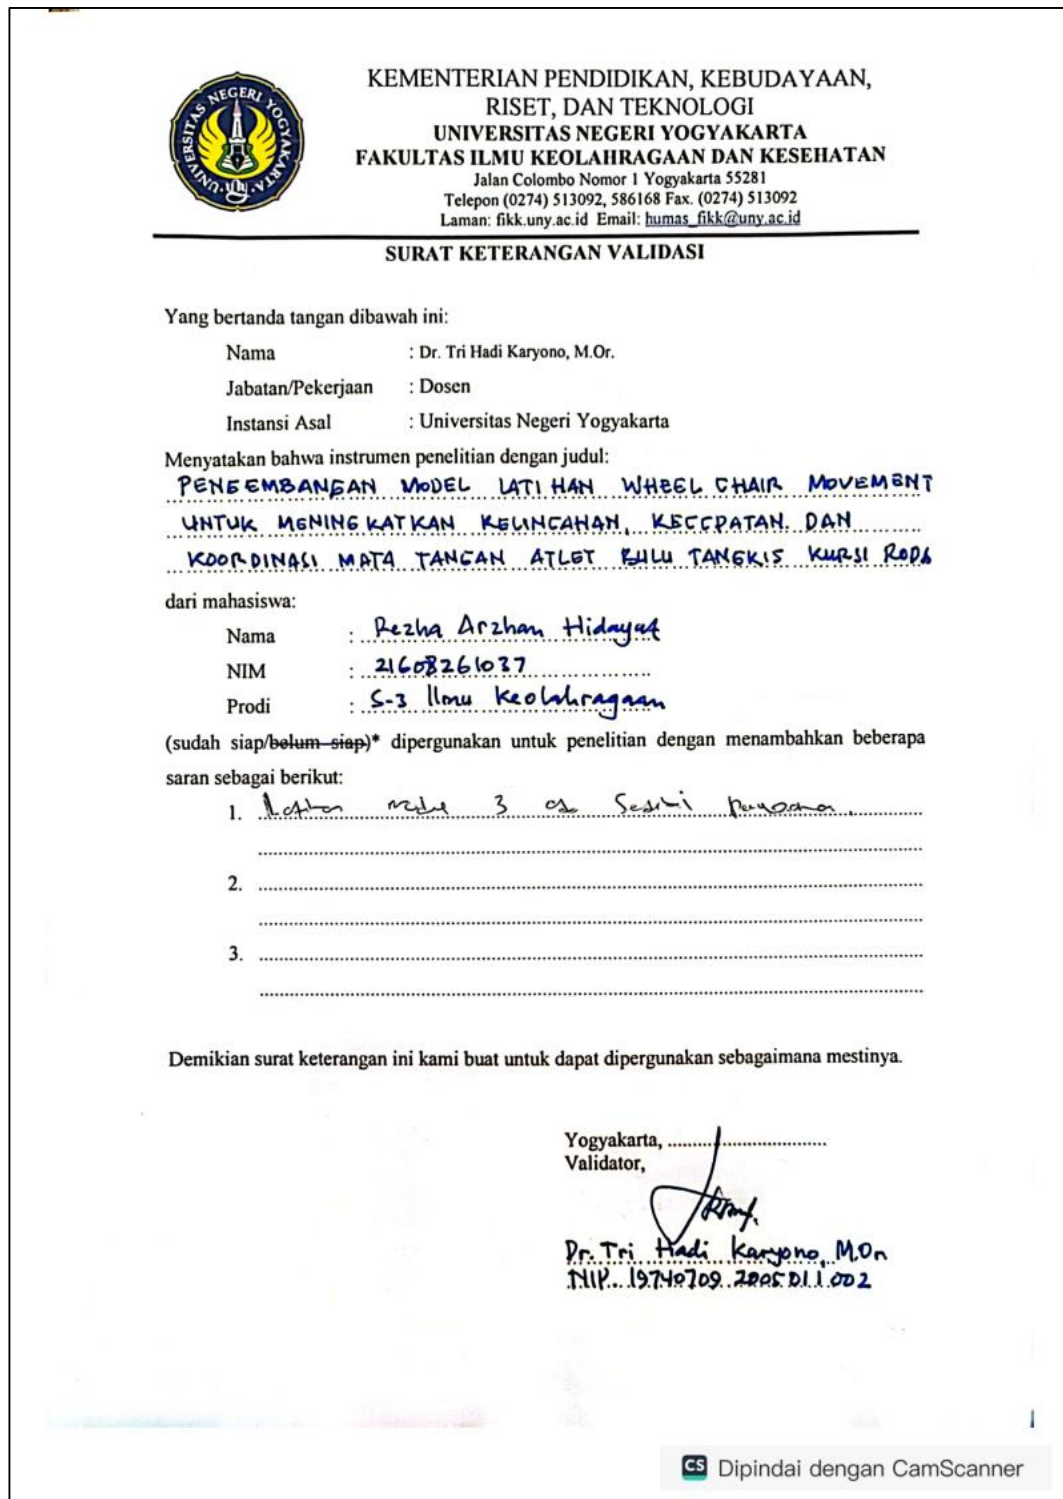 UNIVERSITAS NEGERI YOGYAKARTA
KEMENTERIAN PENDIDIKAN, KEBUDAYAAN,
RISET, DAN TEKNOLOGI
UNIVERSITAS NEGERI YOGYAKARTA
FAKULTAS ILMU KEOLAHRAGAAN DAN KESEHATAN
Jalan Colombo Nomor 1 Yogyakarta 55281
Telepon (0274) 513092, 586168 Fax. (0274) 513092
Laman: fikk.uny.ac.id Email: humas_fikk@uny.ac.id
SURAT KETERANGAN VALIDASI
Yang bertanda tangan dibawah ini:
Nama : Dr. Tri Hadi Karyono, M.Or.
Jabatan/Pekerjaan : Dosen
Instansi Asal : Universitas Negeri Yogyakarta
Menyatakan bahwa instrumen penelitian dengan judul:
PENGEMBANGAN MODEL LATIHAN WHEEL CHAIR MOVEMENT
UNTUK MENINGKATKAN KELINCAHAN, KECEPATAN DAN
KOORDINASI MATA TANGAN ATLET BULU TANGKIS KURSI RODA
dari mahasiswa:
Nama : Rezha Arzhan Hidayat
NIM : 21608261037
Prodi : S-3 Ilmu Keolahragaan
(sudah siap/belum siap)* dipergunakan untuk penelitian dengan menambahkan beberapa
saran sebagai berikut:
1. Latihan 3
2.
3.
Demikian surat keterangan ini kami buat untuk dapat dipergunakan sebagaimana mestinya.
Yogyakarta,
Validator,
Dr. Tri Hadi Karyono, M.Or
NIP. 19740709 200501 1 002
CS Dipindai dengan CamScanner